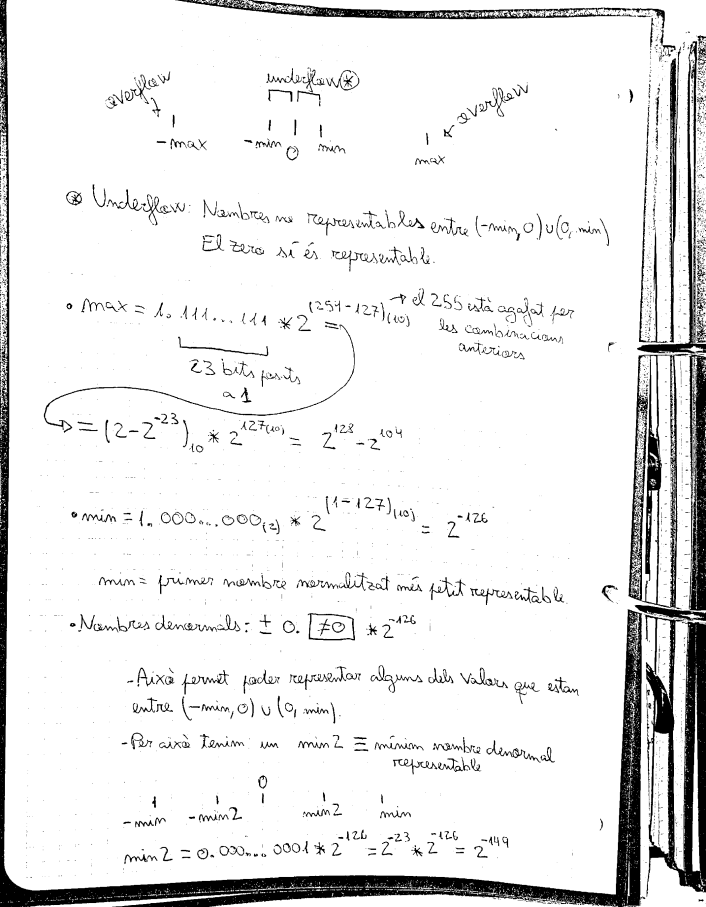 overflow underflow⊛ overflow
-max -min 0 min max
⊛ Underflow: Nombres no representables entre (-min, 0) ∪ (0, min)
El zero sí és representable.
• max = 1. 111... 111 * 2^(254-127)₍₁₀₎ = → el 255 està agafat per
les combinacions
anteriors
23 bits posats
a 1
= (2-2^-23)₁₀ * 2^127₍₁₀₎ = 2^128 - 2^104
• min = 1. 000...000₍₂₎ * 2^(1-127)₍₁₀₎ = 2^-126
min = primer nombre normalitzat més petit representable.
• Nombres denormals: ± 0. ≠0 * 2^-126
- Això permet poder representar alguns dels valors que estan
entre (-min, 0) ∪ (0, min).
- Per això tenim un min2 ≡ mínim nombre denormal
representable
0
-min -min2 min2 min
min2 = 0.000....0001 * 2^-126 = 2^-23 * 2^-126 = 2^-149